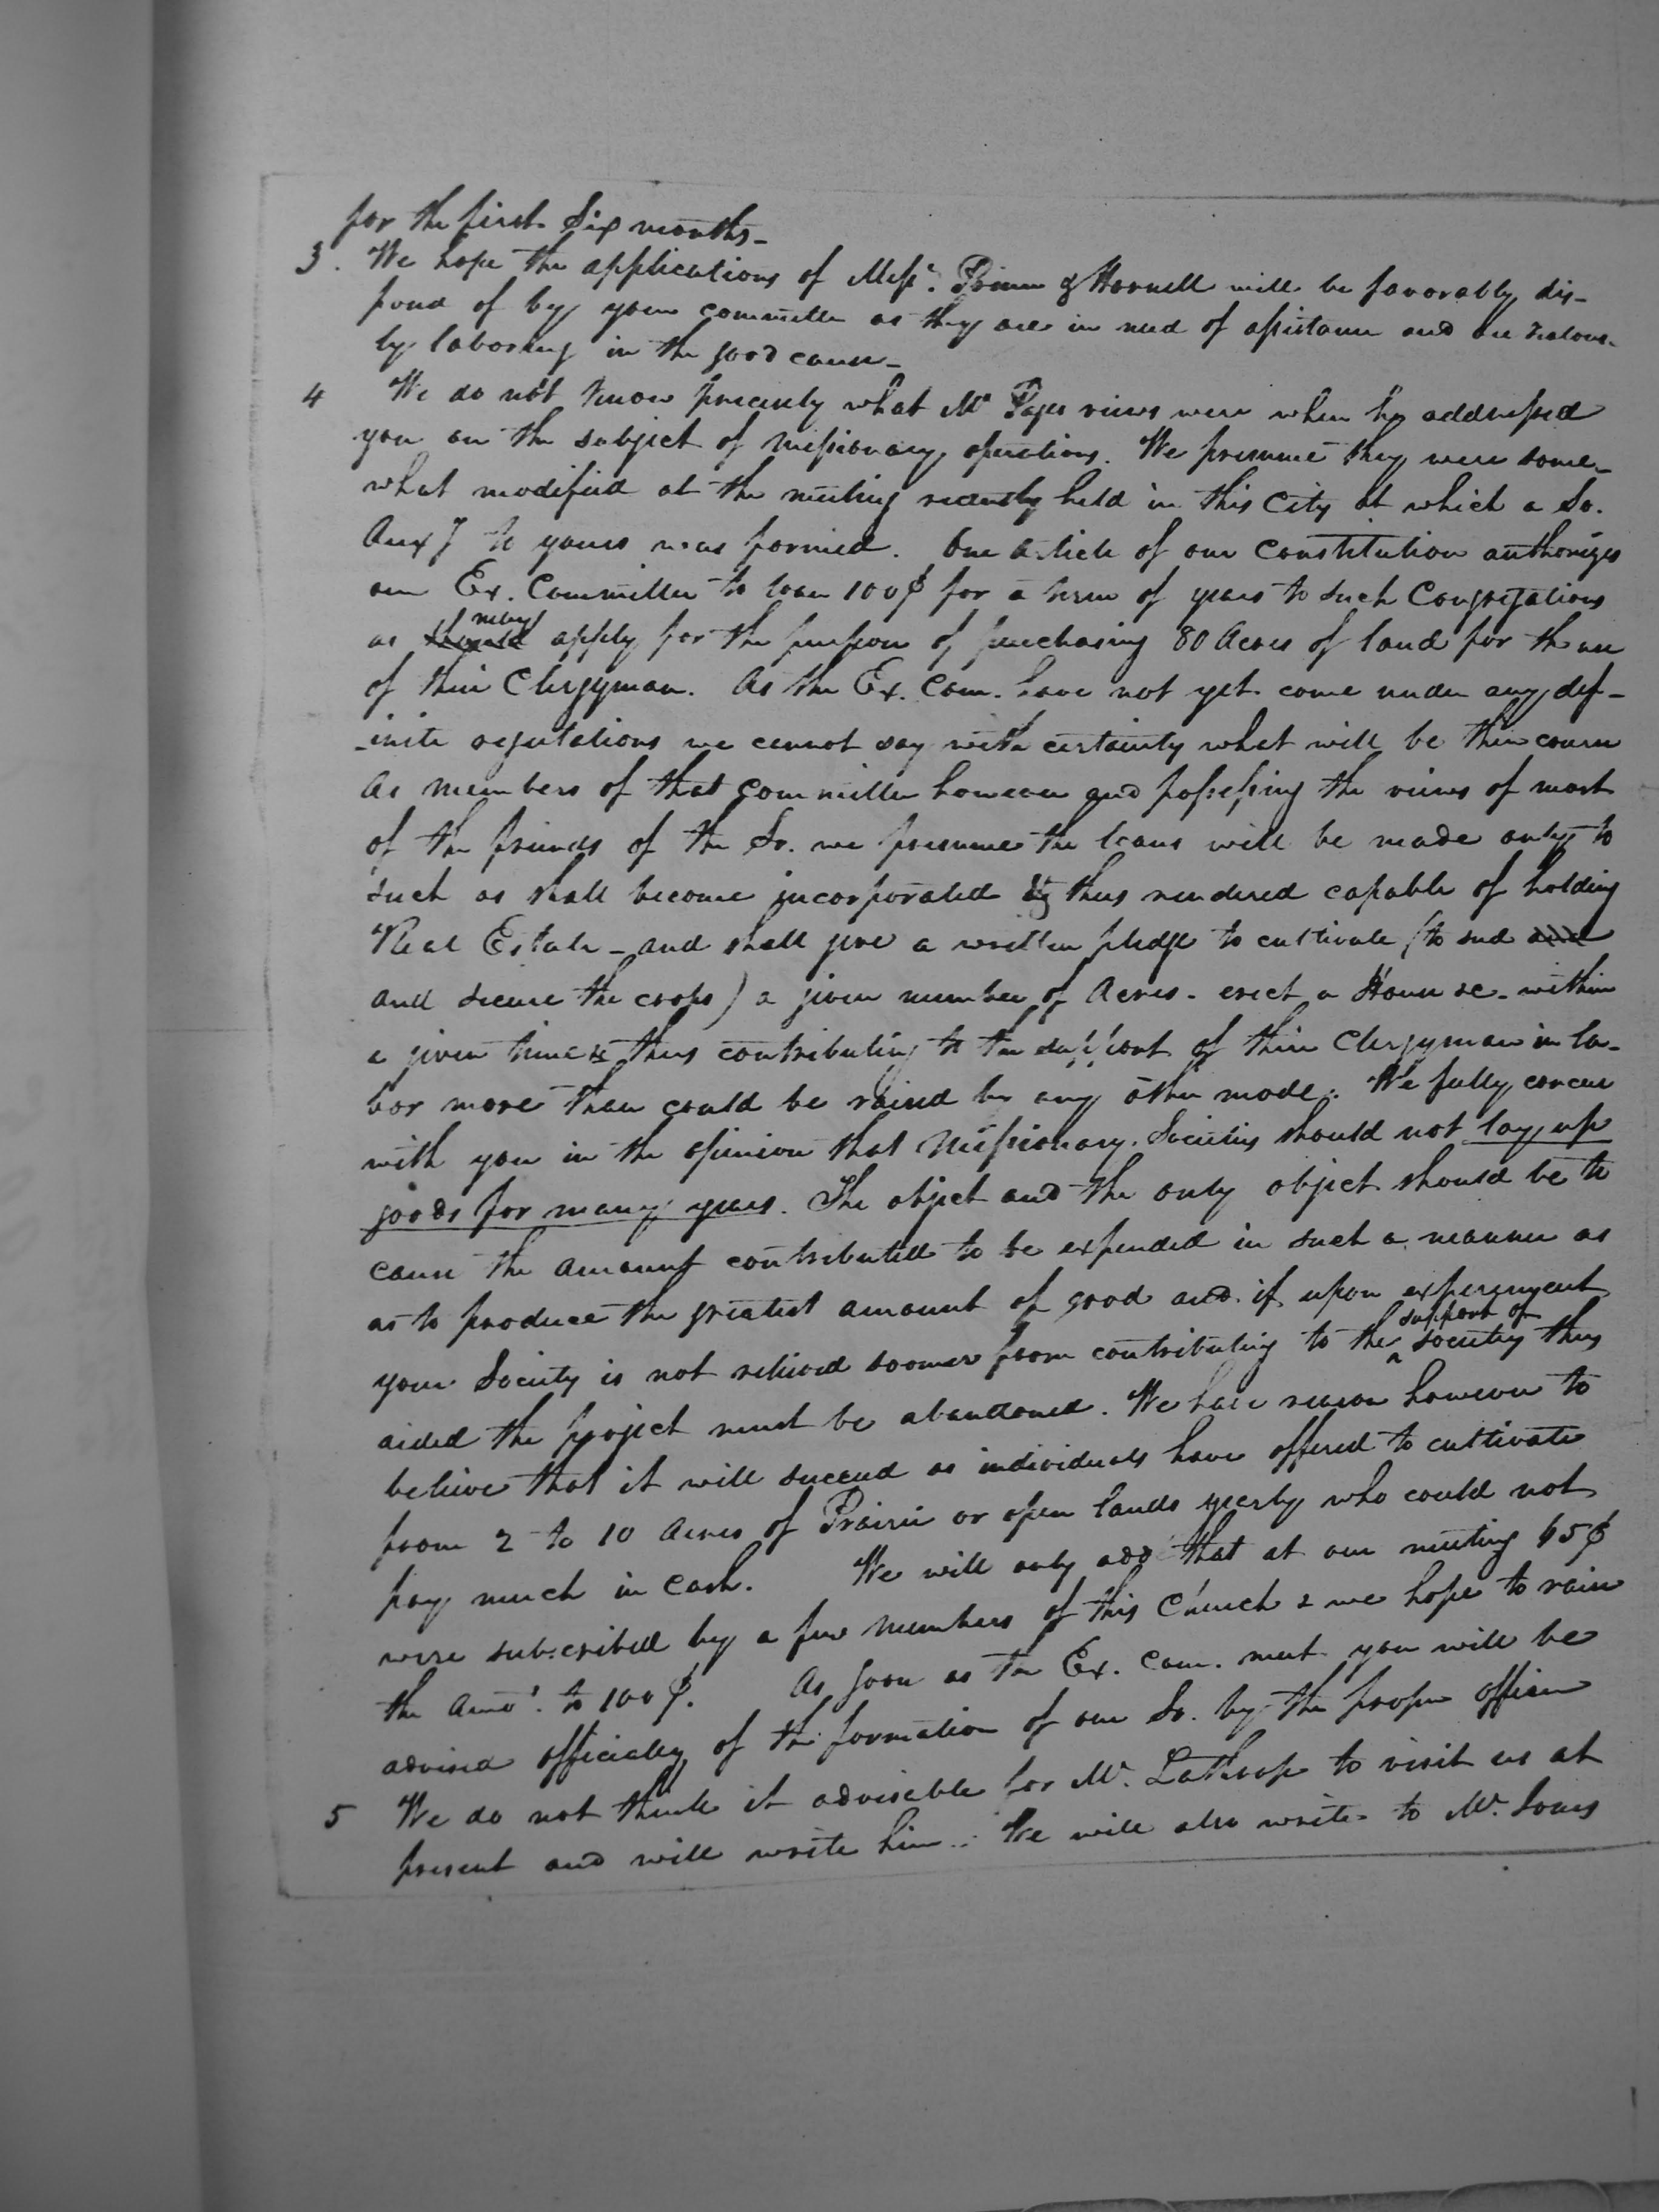 for the first Six months_
3. We hope the applications of Mess. & Hornell will be favorably dis-
posed of by your committee as they are in need of assistance and are zealous-
ly laboring in the good cause_
4 We do not know precisely what Mr Pages views were when he addressed
you on the subject of missionary operations. We presume they were some-
what modified at the meeting recently held in this City at which a So.
Auxy to yours was formed. One article of our Constitution authorizes
our Ex. Committee to loan 100$ for a term of years to such Congregations
as may apply for the purpose of purchasing 80 Acres of land for the use
of their Clergyman. As the Ex. Com. have not yet come under any def-
-inite regulations we cannot say with certainty what will be their course
As members of that Committee however and possessing the views of most
of the friends of the So. we presume the loans will be made only to
such as shall become incorporated & thus rendered capable of holding
Real Estate_ and shall give a written pledge to cultivate (to and
and secure the crops) a given number of Acres - erect a House &c - within
a given time & thus contributing to the support of their Clergyman in la-
bor more than could be raised by any other mode. We fully concur
with you in the opinion that Missionary Societies should not lay up
goods for many years. The object and the only object should be to
cause the amount contributed to be expended in such a manner as
as to produce the greatest amount of good and if upon experiment
your Society is not relieved sooner from contributing to the support of society thus
aided the project must be abandoned. We have reason however to
believe that it will succeed as individuals have offered to cultivate
from 2 to 10 Acres of Prairie or open lands yearly who could not
pay much in cash. We will only add that at our meeting 65$
were subscribed by a few members of this Church & we hope to raise
the amot. to 100$. As soon as the Ex. Com. meet you will be
advised officially of the formation of our So. by the proper officer
5 We do not think it adviseable for Mr. Lathrop to visit us at
present and will write him. We will also write to Mr. Jones